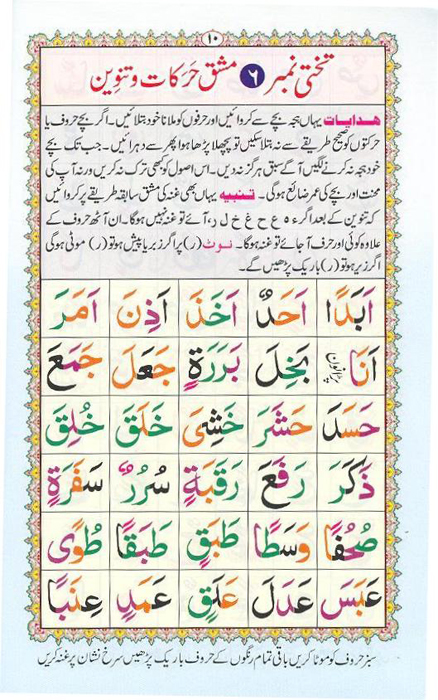 ۱۰
تختی نمبر ۶ مشق حرکات و تنوین
ھدایات یہاں ہجہ بچے سے کروائیں اور حرفوں کو ملانا خود بتلائیں۔ اگر بچے حروف یا
حرکتوں کو صحیح طریقے سے نہ بتلا سکیں تو پچھلا پڑھا ہوا پھر سے دہرائیں۔ جب تک بچے
خود ہجہ نہ کرنے لگیں آگے سبق ہرگز نہ دیں۔ اس اصول کو کبھی ترک نہ کریں ورنہ آپ کی
محنت اور بچے کی عمر ضائع ہوگی۔ تنبیہ یہاں بھی غنہ کی مشق سابقہ طریقے پر کروائیں
کہ تنوین کے بعد اگر ء ہ ع ح غ خ ل ر آئے تو غنہ نہیں ہوگا ان آٹھ حروف کے
علاوہ کوئی اور حرف آجائے تو غنہ ہوگا۔ نوٹ (ر) پر اگر زبر یا پیش ہو تو (ر) موٹی ہوگی
اگر زیر ہو تو (ر) باریک پڑھیں گے۔
اَبَدًا اَحَدٌ اَخَذَ اَذِنَ اَمَرَ
اَنَا بَخِلَ بَرَرَةٍ جَعَلَ جَمَعَ
حَسَدَ حَشَرَ خَشِىَ خَلَقَ خُلِقَ
ذَكَرَ رَفَعَ رَقَبَةٍ سُرُرٌ سَفَرَةٍ
صُحُفًا وَسَطًا طَبَقٍ طَبَقًا طُوًى
عَبَسَ عَدَلَ عَلَقٍ عَمَدٍ عِنَبًا
سبز حروف کو موٹا کریں باقی تمام رنگوں کے حروف باریک پڑھیں سرخ نشان پر غنہ کریں